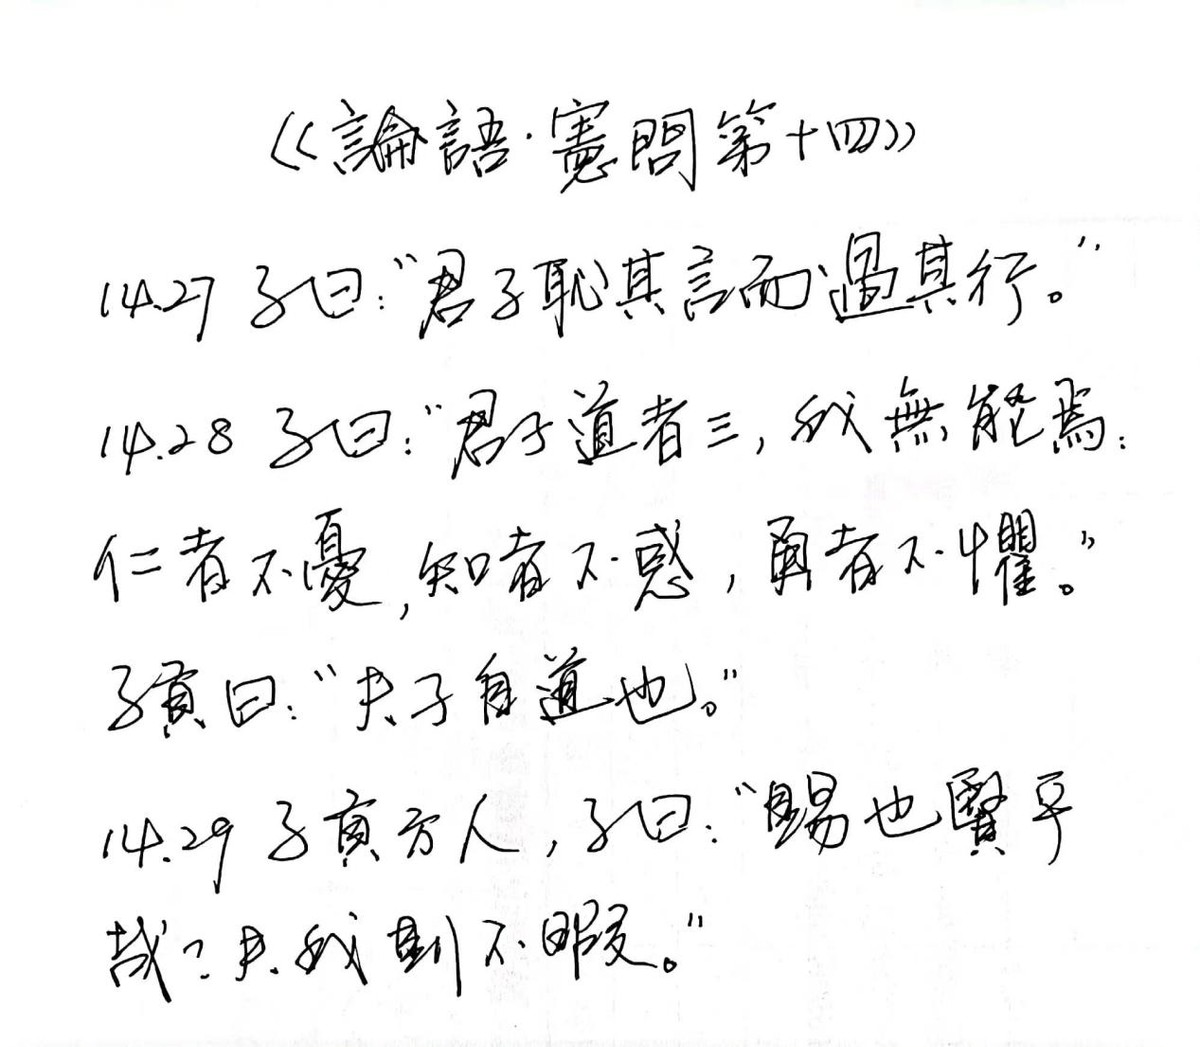 《論語·憲問第十四》
14.27 子曰:“君子恥其言而過其行。”
14.28 子曰:“君子道者三,我無能焉:
仁者不憂,知者不惑,勇者不懼。”
子貢曰:“夫子自道也。”
14.29 子貢方人,子曰:“賜也賢乎
哉?夫我則不暇。”